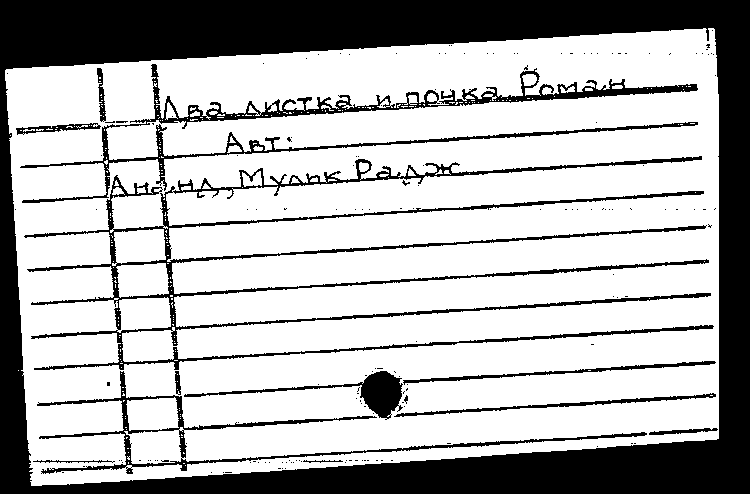 Два листка и почка Роман
Авт:
Ананд, Мульк Радж